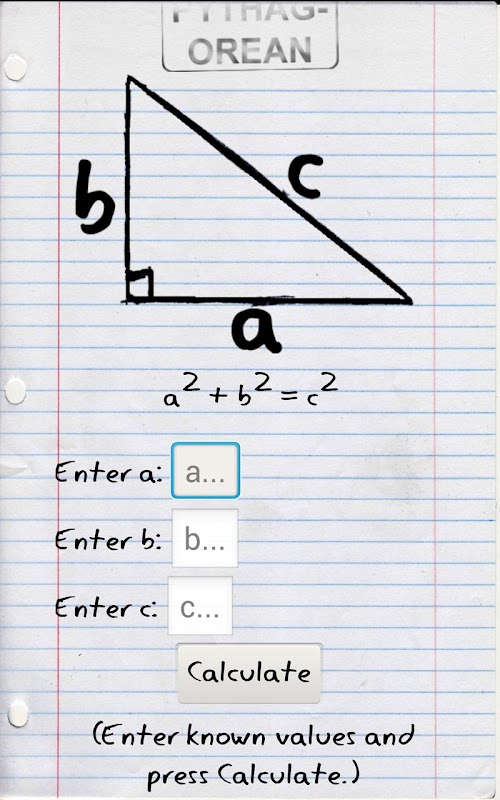 PYTHAG-
OREAN
b
c
a
a² + b² = c²
Enter a: a...
Enter b: b...
Enter c: c...
Calculate
(Enter known values and
press Calculate.)